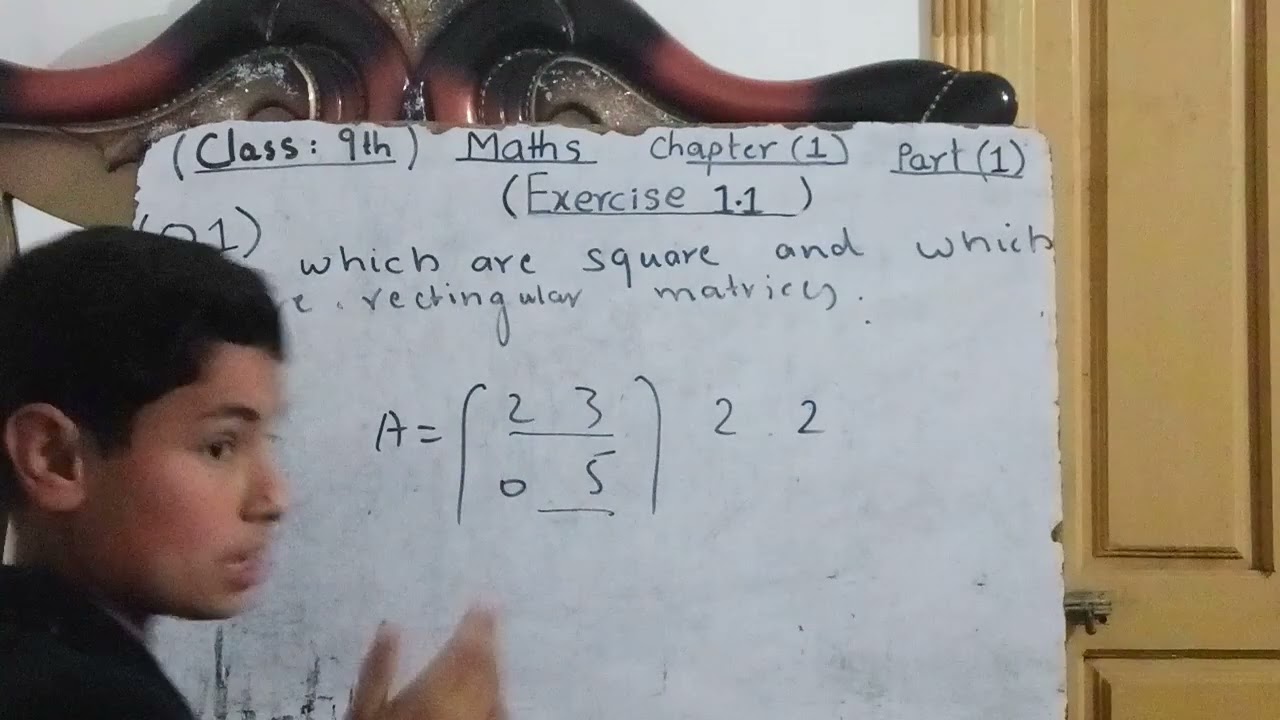 (Class: 9th) Maths Chapter (1) Part (1)
(Exercise 1.1)
(Q1)
which are square and which
rectingular matrices.
A = [ 2 3 ] 2 2
0 5